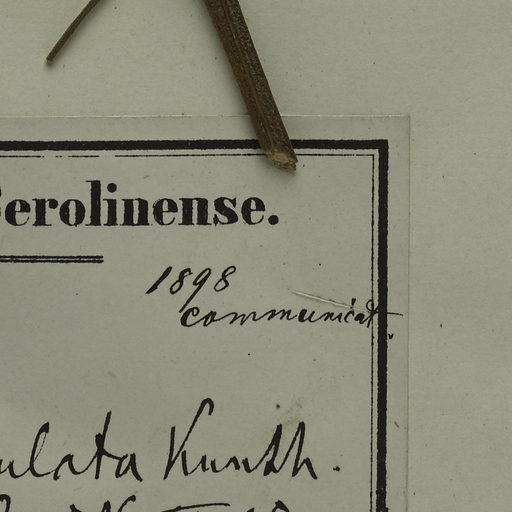 erolinense.
1898
communicat.
ulata Kunth.